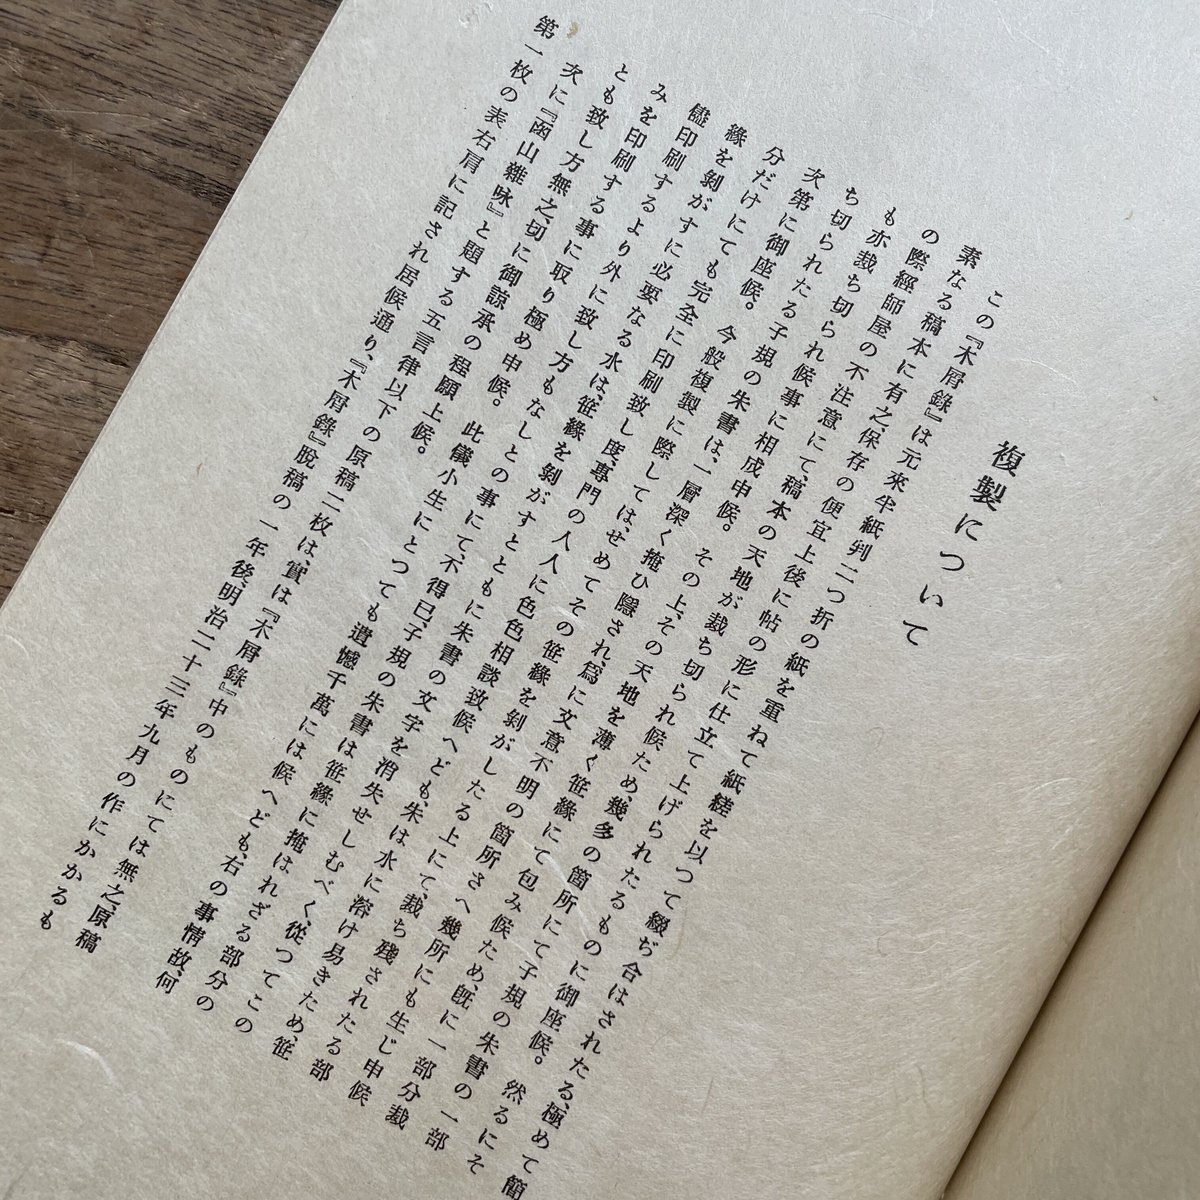 複製について
この『木屑錄』は元來半紙判二つ折の紙を重ねて紙縒を以つて綴ぢ合はされたる、極めて簡
素なる稿本に有之、保存の便宜上後に帖の形に仕立て上げられたるものに御座候。然るにそ
の際經師屋の不注意にて、稿本の天地が裁ち切られ候ため、幾多の箇所にて子規の朱書の一部
も亦裁ち切られ候事に相成申候。その上、その天地を薄く笹緣にて包み候ため、既に一部分裁
ち切られたる子規の朱書は、一層深く掩ひ隱され、爲に文意不明の箇所さへ幾所にも生じ申候
次第に御座候。今般複製に際しては、せめてその笹緣を剝がしたる上にて、裁ち殘されたる部
分だけにても完全に印刷致し度、專門の人人に色色相談致候へども、朱は水に溶け易きため、笹
緣を剝がすに必要なる水は、笹緣を剝がすとともに朱書の文字を消失せしむべく、從つてこの
儘印刷するより外に致し方もなしとの事にて、不得已、子規の朱書は笹緣に掩はれざる部分の
みを印刷する事に取り極め申候。此儀小生にとつても遺憾千萬には候へども、右の事情故、何
とも致し方無之、切に御諒承の程願上候。
次に『函山雜咏』と題する五言律以下の原稿二枚は、實は『木屑錄』中のものにては無之、原稿
第一枚の表右肩に記され居候通り、『木屑錄』脫稿の一年後、明治二十三年九月の作にかかるも